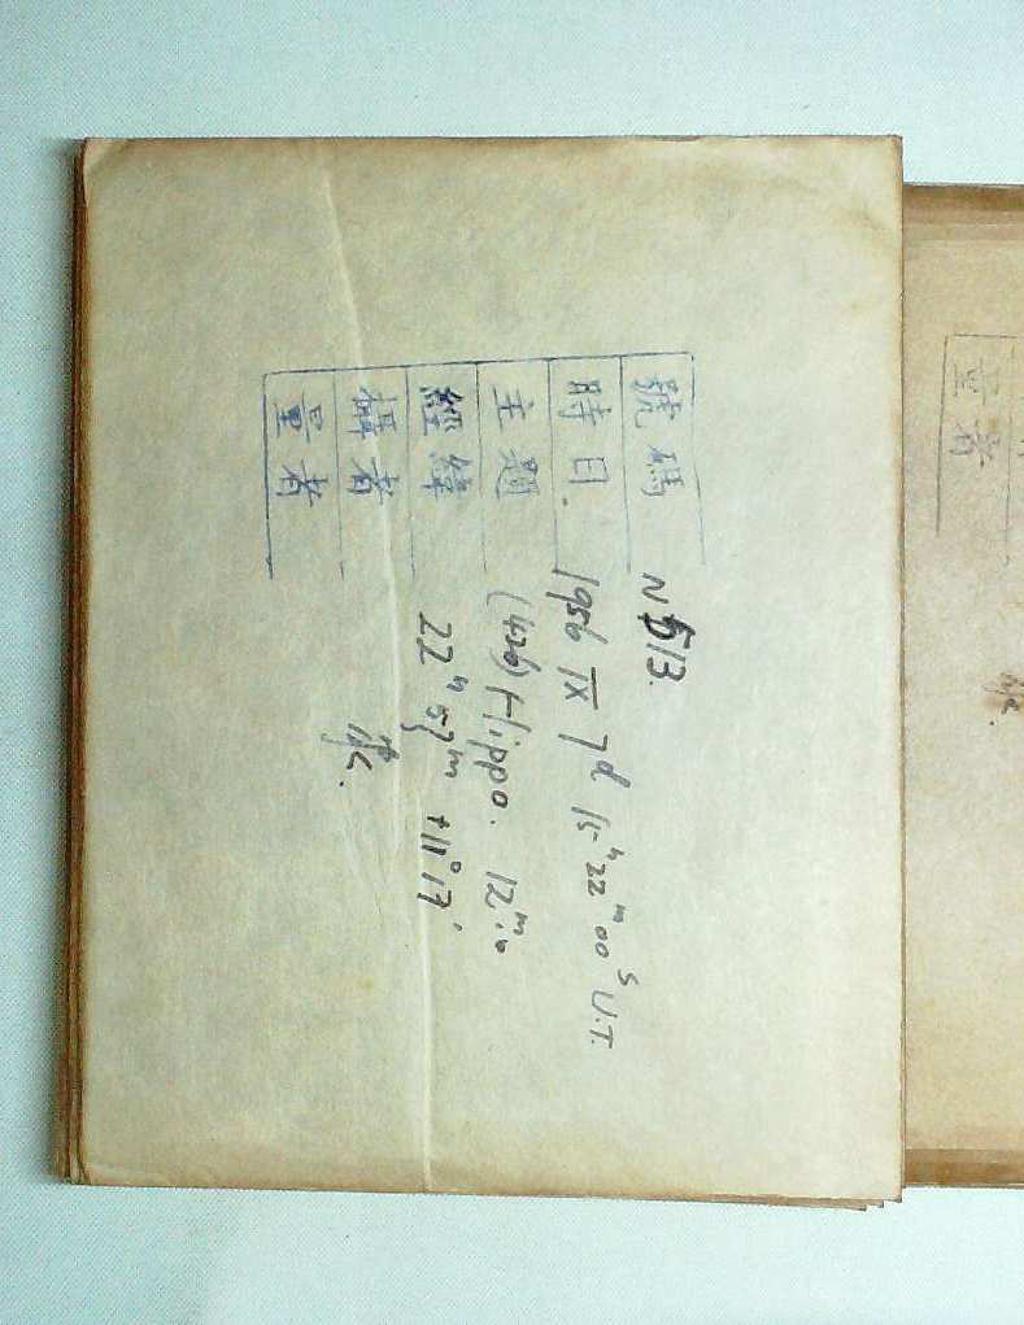 號碼 N 513.
時日 1956 IX 7d 15h 22m 00s U.T.
主題 (426) Hippo. 12m.0
經緯 22h 53m +11° 17′
攝者
量者
量者